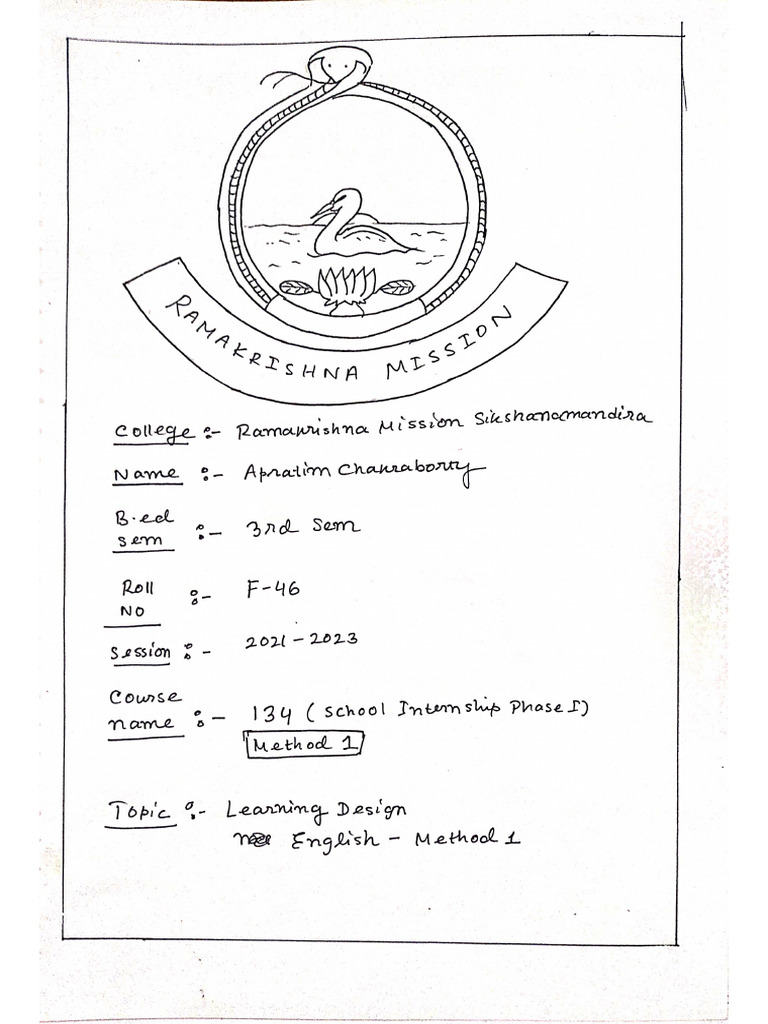 RAMAKRISHNA MISSION
College :- Ramakrishna Mission Sikshanamandira
Name :- Apratim Chakraborty
B.ed
sem :- 3rd Sem
Roll
NO :- F-46
Session :- 2021-2023
Course
name :- 134 (School Internship Phase I)
Method 1
Topic :- Learning Design
English - Method 1